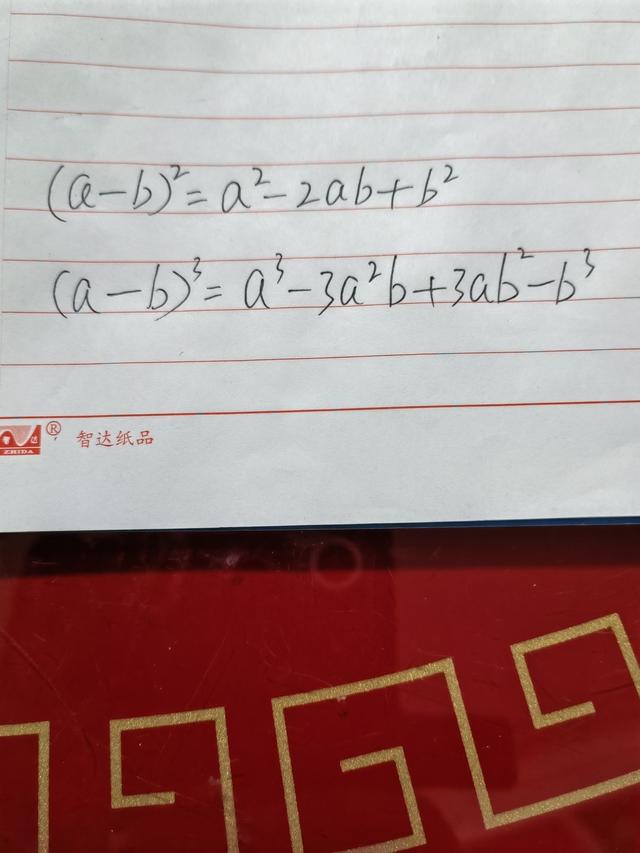 (a-b)²=a²-2ab+b²
(a-b)³=a³-3a²b+3ab²-b³
智达 ZHIDA ® 智达纸品